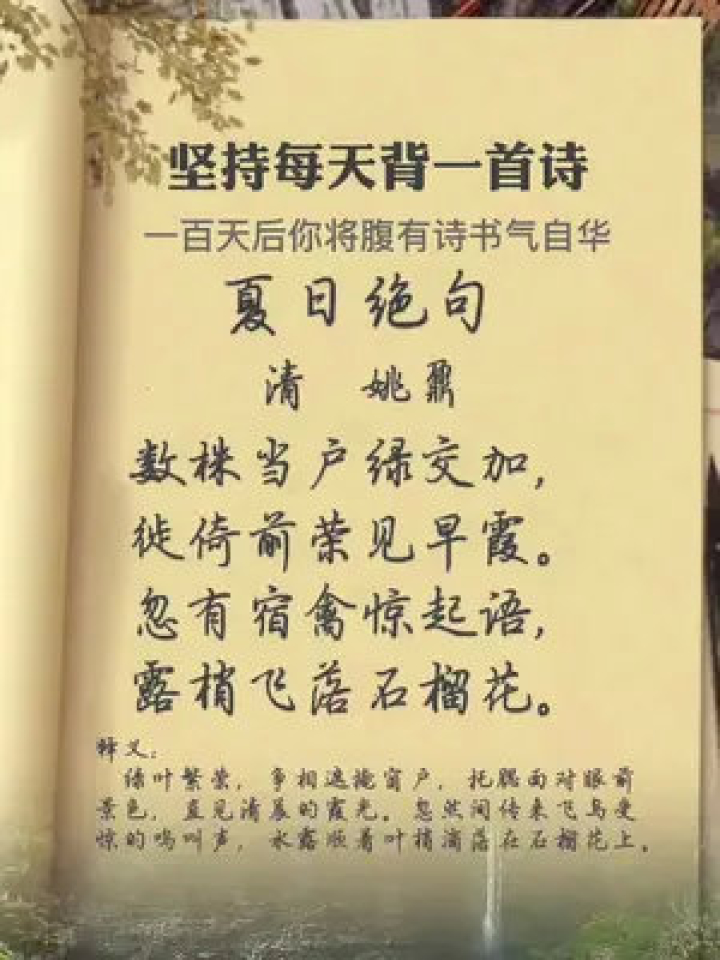 坚持每天背一首诗
一百天后你将腹有诗书气自华
夏日绝句
清 姚鼐
数株当户绿交加,
徙倚前荣见早霞。
忽有宿禽惊起语,
露梢飞落石榴花。
释义:
绿叶繁荣,争相遮掩窗户,托腮面对眼前
景色,直见清晨的霞光。忽然间传来飞鸟受
惊的鸣叫声,水露顺着叶梢滴落在石榴花上。